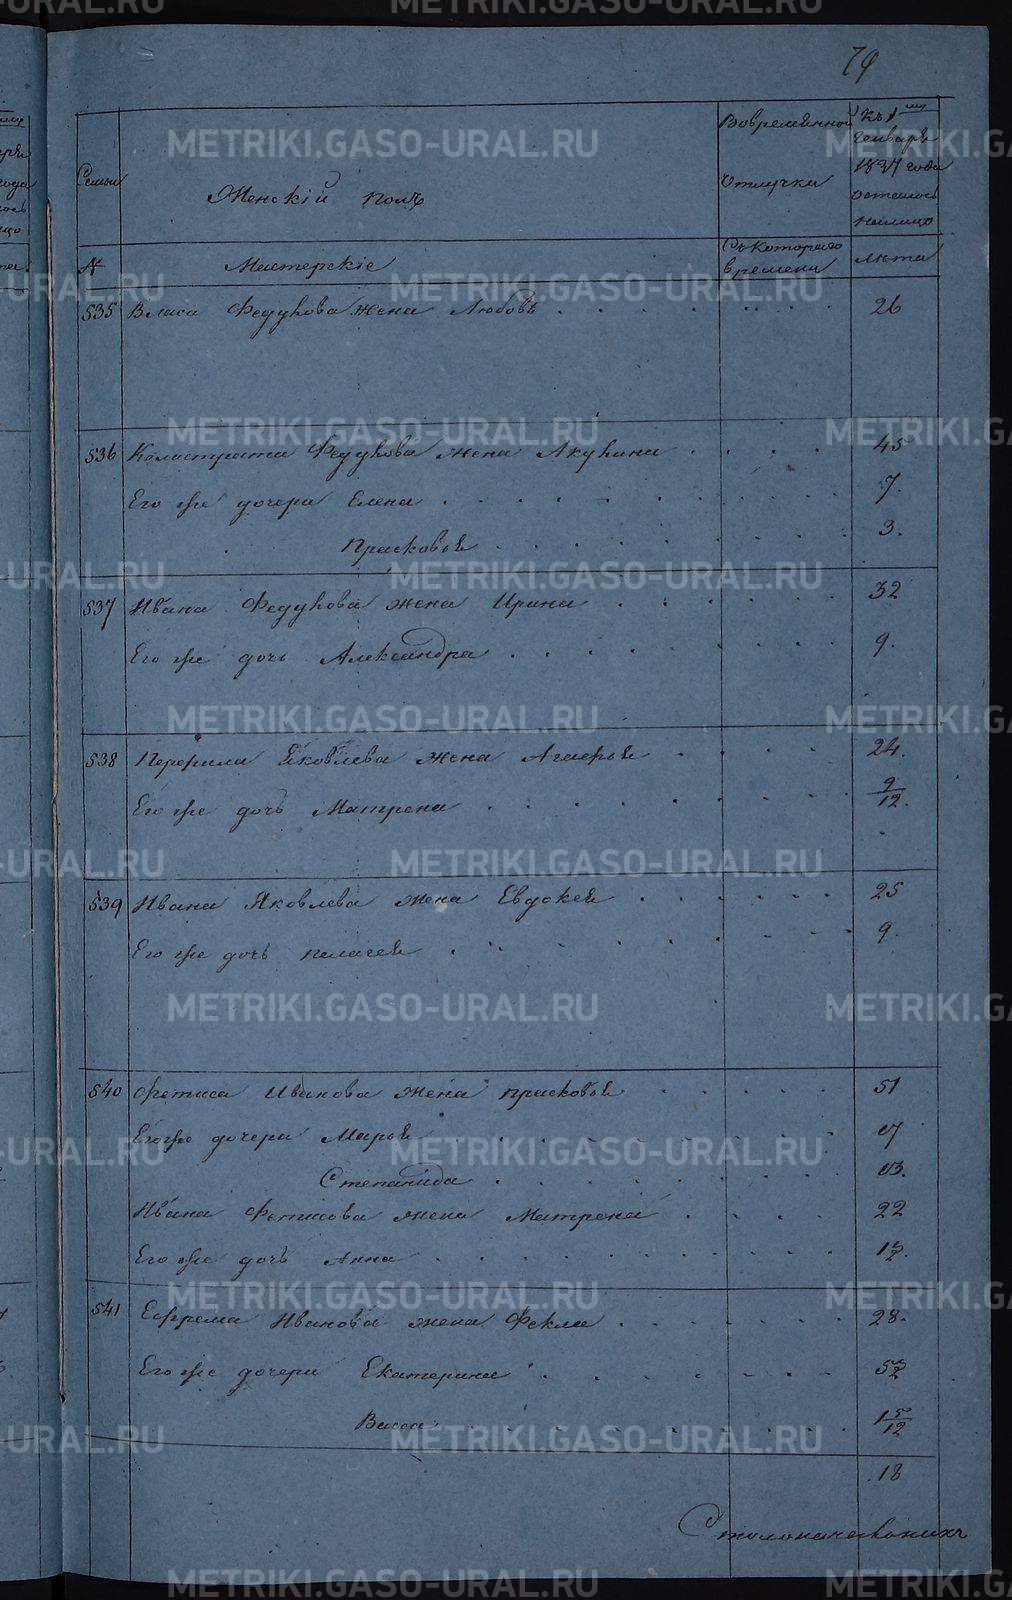 79
Семьи
Женскій полъ
Во временной
отлучки
Къ 1
генваря
1837 года
осталось
на лицо
№
Мастерскіе
Съ котораго
времени
лѣта
535 Власа Федукова жена Любовь 26
536 Калистрата Федукова жена Акулина 45
Его же дочери Елена 7.
Прасковья 3.
537 Ивана Федукова жена Ирина 32
Его же дочь Александра 9.
538 Перфила Яковлева жена Агафья 24.
Его же дочь Матрена 9/12.
539 Ивана Яковлева жена Евдокея 25
Его же дочь Пелагея 9.
540 Фетиса Иванова жена Прасковья 51
Его же дочери Марья 17
Степанида 13.
Ивана Фетисова жена Матрена 22
Его же дочь Анна
541 Ефрема Иванова жена Фекла 28.
Его же дочери Екатерина
Васса 1 5/12
18
Столоначальникъ
METRIKI.GASO-URAL.RU